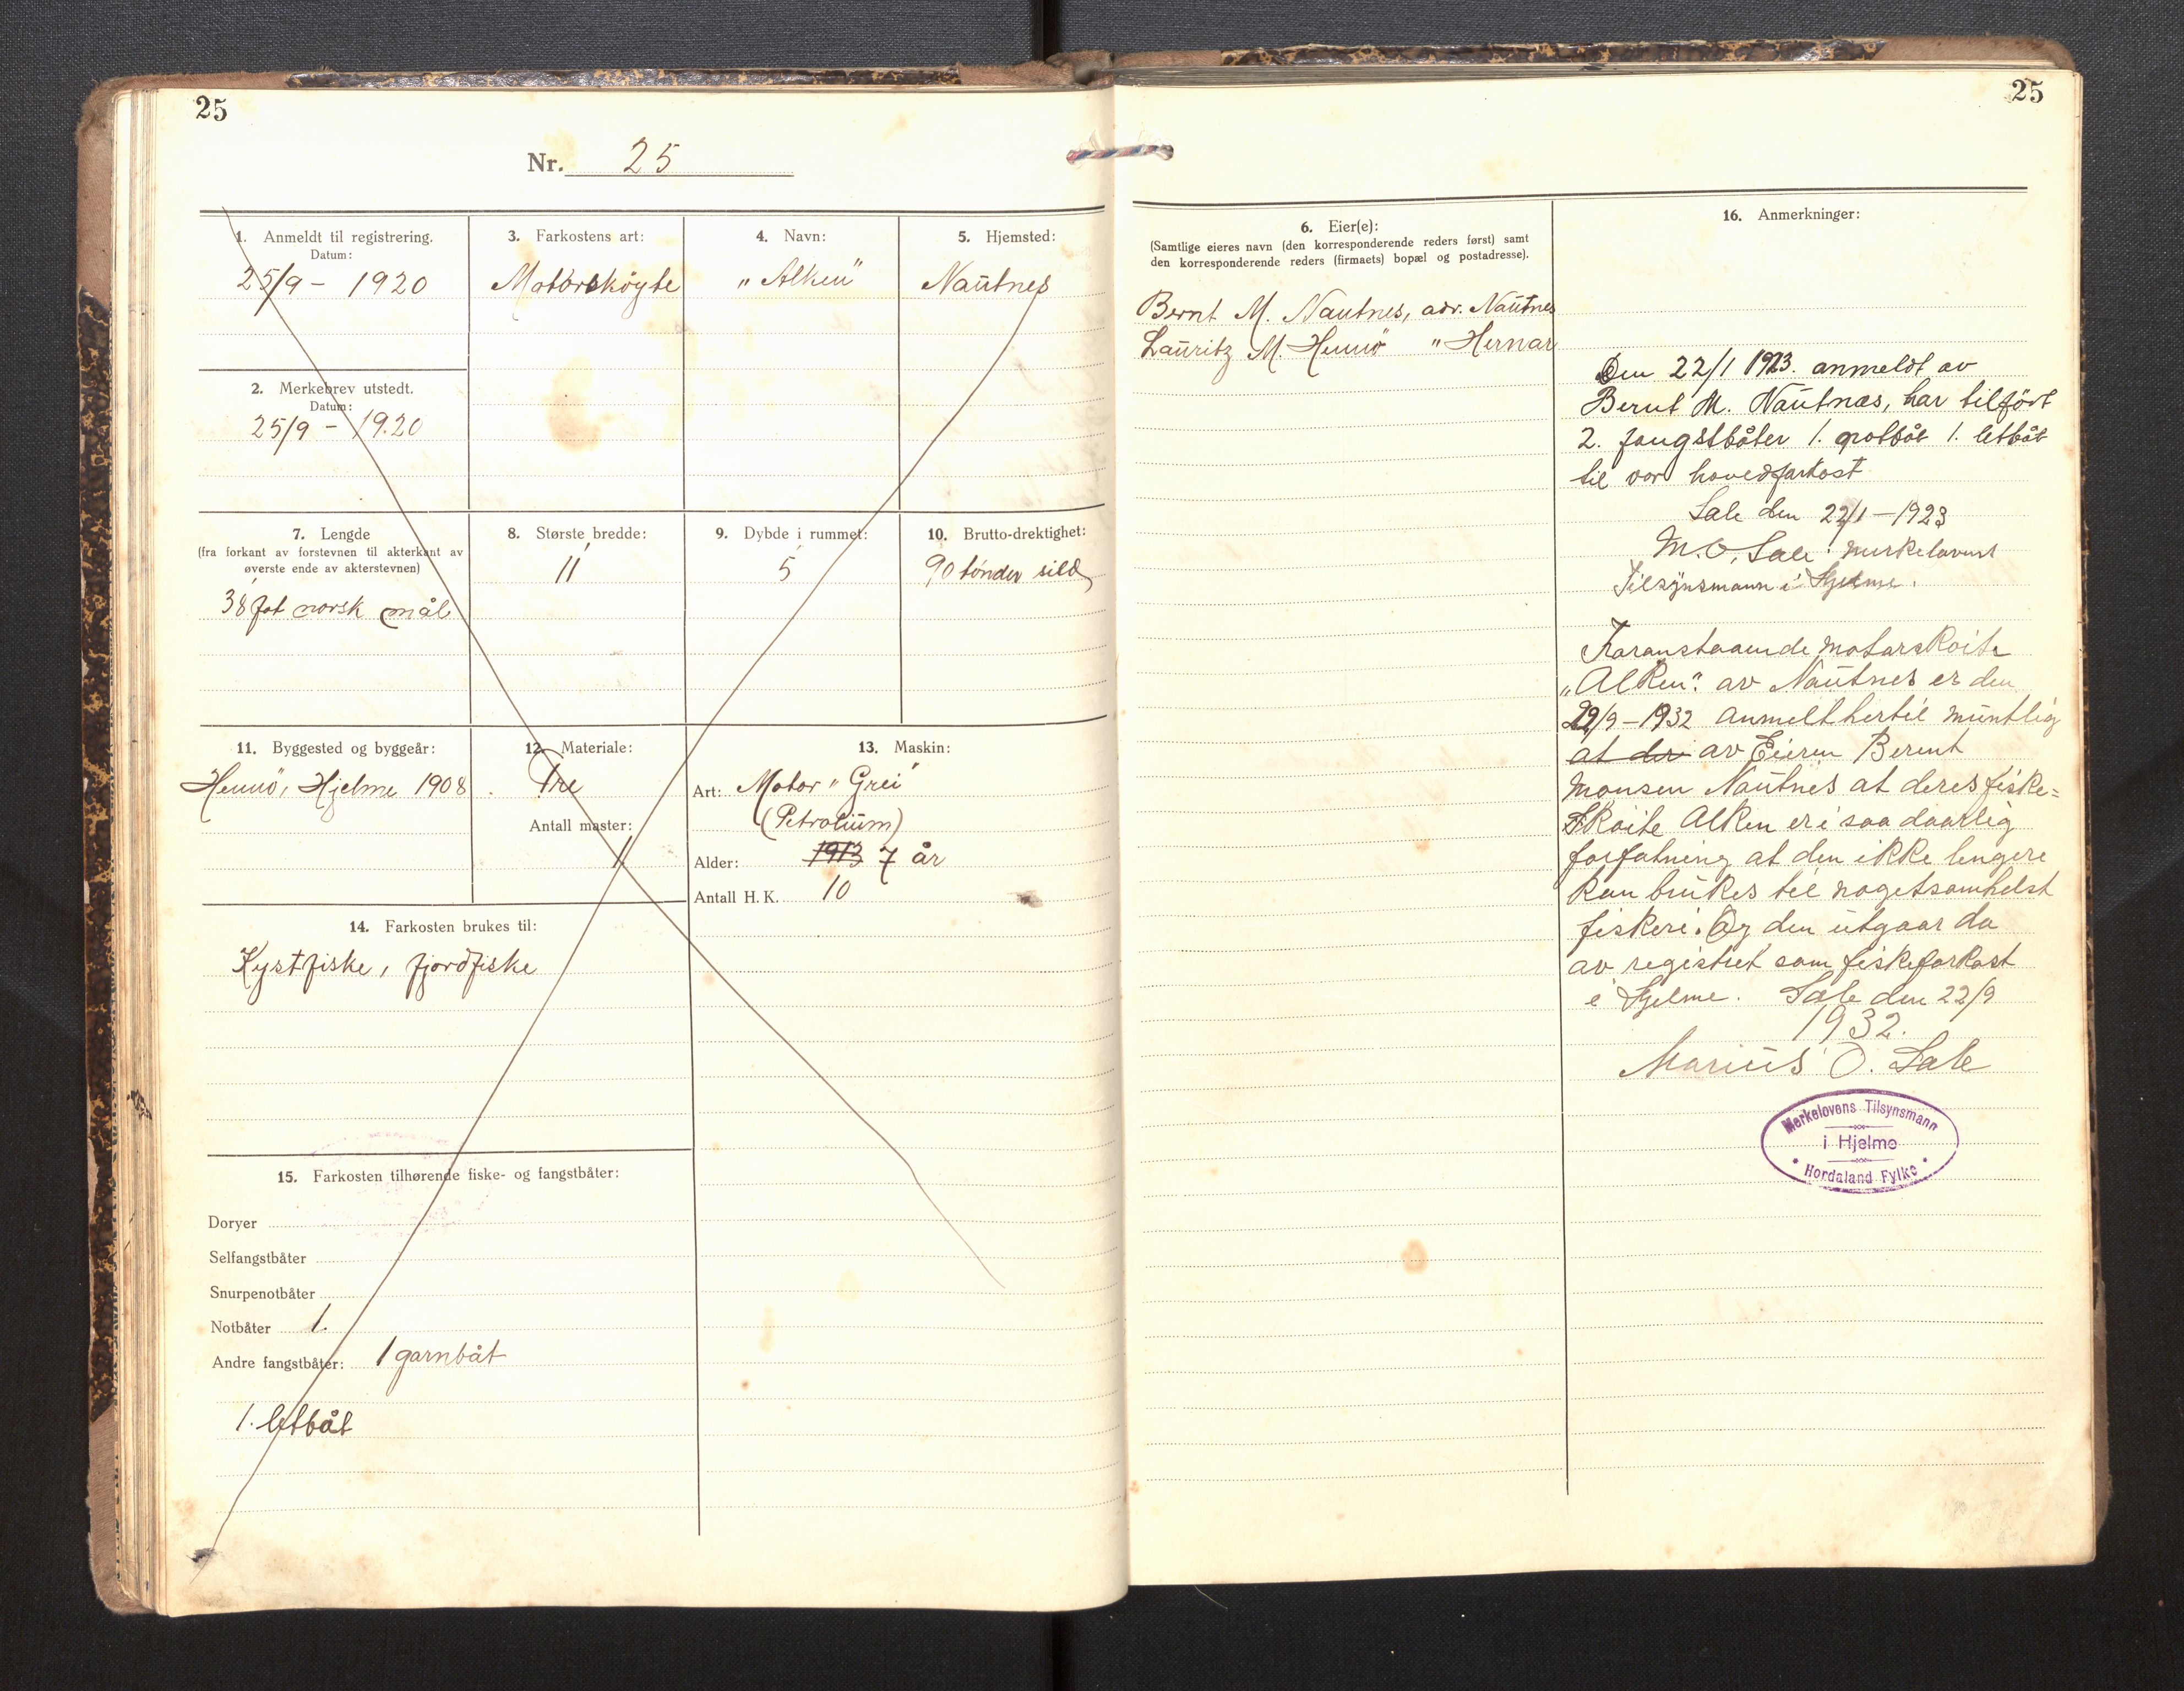 25
Nr. 25
1. Anmeldt til registrering.
Datum:
25/9 - 1920
2. Merkebrev utstedt.
Datum:
25/9 - 1920
3. Farkostens art:
Motorskøyte
4. Navn:
"Alken"
5. Hjemsted:
Nautnes
7. Lengde
(fra forkant av forstevnen til akterkant av
øverste ende av akterstevnen)
38 fot norsk mål
8. Største bredde:
11'
9. Dybde i rummet:
5'
10. Brutto-drektighet:
90 tønder sild
11. Byggested og byggeår:
Hennö, Hjelme 1908
12. Materiale:
Tre
Antall master:
1
13. Maskin:
Art: Motor "Grei"
(Petrolium)
Alder: 1913 7 år
Antall H. K. 10
14. Farkosten brukes til:
Kystfiske, fjordfiske
15. Farkosten tilhørende fiske- og fangstbåter:
Doryer
Selfangstbåter
Snurpenotbåter
Notbåter 1.
Andre fangstbåter: 1 garnbåt
1. letbåt
25
6. Eier(e):
(Samtlige eieres navn (den korresponderende reders først) samt
den korresponderende reders (firmaets) bopæl og postadresse).
Bernt M. Nautnes, adr. Nautnes
Lauritz M. Hennö " Hernar
16. Anmerkninger:
Den 22/1 1923. anmeldt av
Bernt M. Nautnæs, har tilført
2. fangstbåter 1. notbåt 1. letbåt
til vor hovedfarkost
Sale den 22/1 - 1923
M. O. Sale. merkelovens
Tilsynsmann i Hjelme.
Foranstaaende motorskoite
"Alken". av Nautnes er den
22/9 - 1932 anmelt hertil muntlig
at der av Eieren Berent
Monsen Nautnes at deres fiske=
skoite Alken er i saa daarlig
forfatning at den ikke lengere
kan brukes til nogetsomhelst
fiskeri. Og den utgaar da
av registret som fiskefarkost
i Hjelme. Sale den 22/9
1932.
Marius O. Sale
Merkelovens Tilsynsmann
i Hjelme
Hordaland Fylke